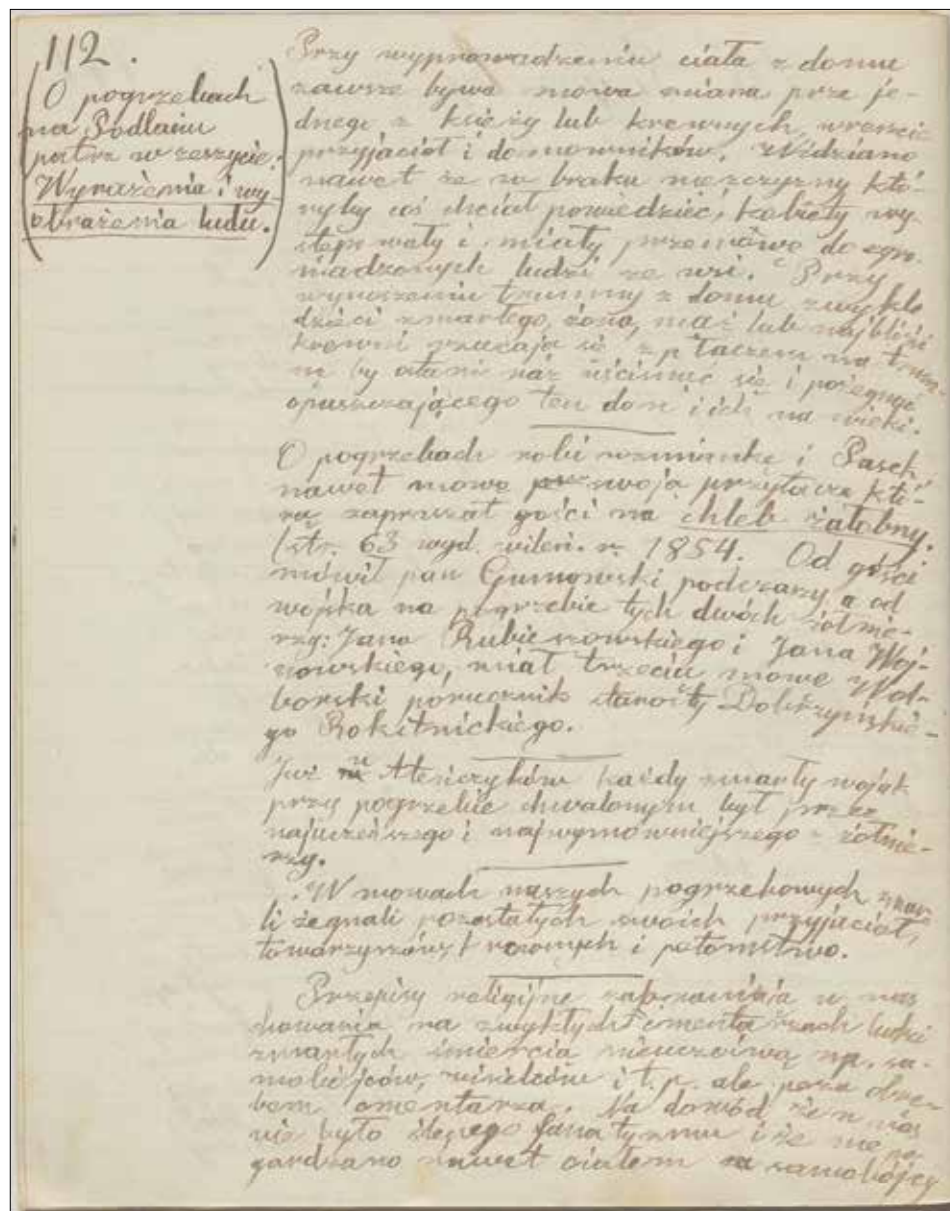 112.
(O pogrzebach
na Podlasiu
patrz w zeszycie:
Wyrażenia i wy-
obrażenia ludu.)
Przy wyprowadzeniu ciała z domu
zawsze bywa mowa miana prze je-
dnego z księży lub krewnych, wreszcie
przyjaciół i domowników. Widziano
nawet że w braku mężczyzny któ-
ryby coś chciał powiedzieć, kobiety wy-
stępowały i miały przemowę do zgro-
madzonych ludzi ze wsi. Przy
wynoszeniu trumny z domu zwykle
dzieci zmarłego, żona, mąż lub najbliżsi
krewni rzucają się z płaczem na trum-
nę by ostatni raz uścisnąć się i pożegnać
opuszczającego ten dom i ich na wieki.
O pogrzebach robi wzmiankę i Pasek,
nawet mowę swoją przytacza któ-
rą zapraszał gości na chleb żałobny.
(str. 63 wyd. wileń. r. 1854. Od gości
mówił pan Gumowski podczaszy a od
wojska na pogrzebie tych dwóch żołnie-
rzy: Jana Rubieszowskiego i Jana Woj-
nowskiego, miał trzecią mowę Wol-
borski porucznik starosty Dobrzyńskie-
go Rokitnickiego.
Już u Ateńczyków każdy zmarły wojak
przy pogrzebie chwalonym był przez
najuczeńszego i najwymowniejszego żołnie-
rzy.
W mowach naszych pogrzebowych zmar-
li żegnali pozostałych swoich przyjaciół,
towarzyszów, krewnych i potomstwo.
Przepisy religijne zabraniają u nas
chowania na zwykłych cmentarzach ludzi
zmarłych śmiercią nieuczciwą np. sa-
mobójców, wisielców i t. p. ale poza obrę-
bem cmentarza. Na dowód że u nas
nie było ślepego fanatyzmu i że nie po-
gardzano nawet ciałem samobójcy